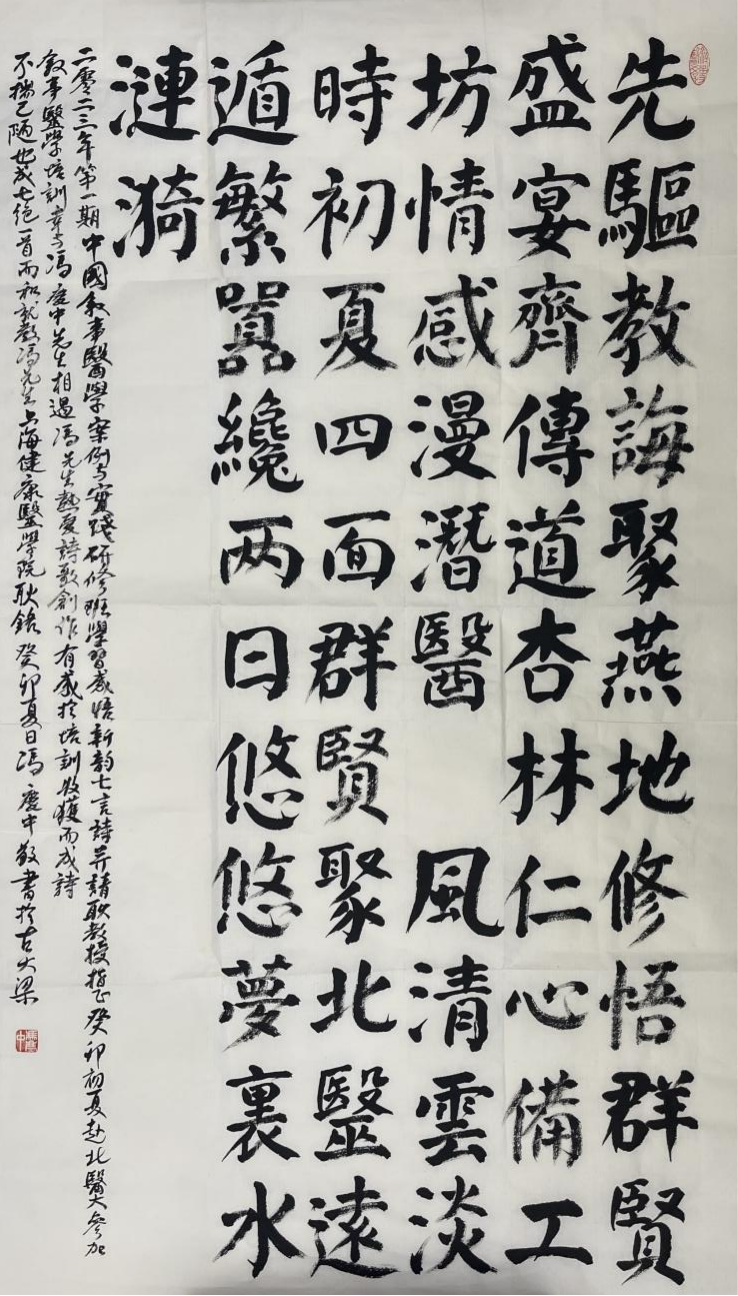 先驅教誨聚燕地修悟群賢
盛宴齊傳道杏林仁心備工
坊情感漫潛醫 風清雲淡
時初夏四面群賢聚北毉遠
遁繁囂纔两日悠悠夢裏水
漣漪
二零二三年第一期中國敘事醫學案例与實踐研修班學習感悟新韵七言詩并請耿教授指正 癸卯初夏赴北醫大參加
敘事毉學培訓幸与馮慶中先生相遇馮先生熱爱詩歌創作有感於培訓收獲而成詩
不揣己陋也成七绝一首而和就教馮先生上海健康毉學院耿銘 癸卯夏日馮慶中敬書於古大梁